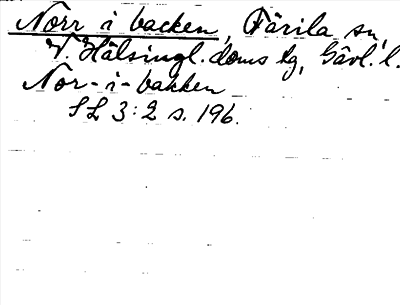 Norr i backen, Färila sn,
V. Hälsingl. doms tg, Gävl. l.
Nor-i-bakken
SL 3:2 s. 196.